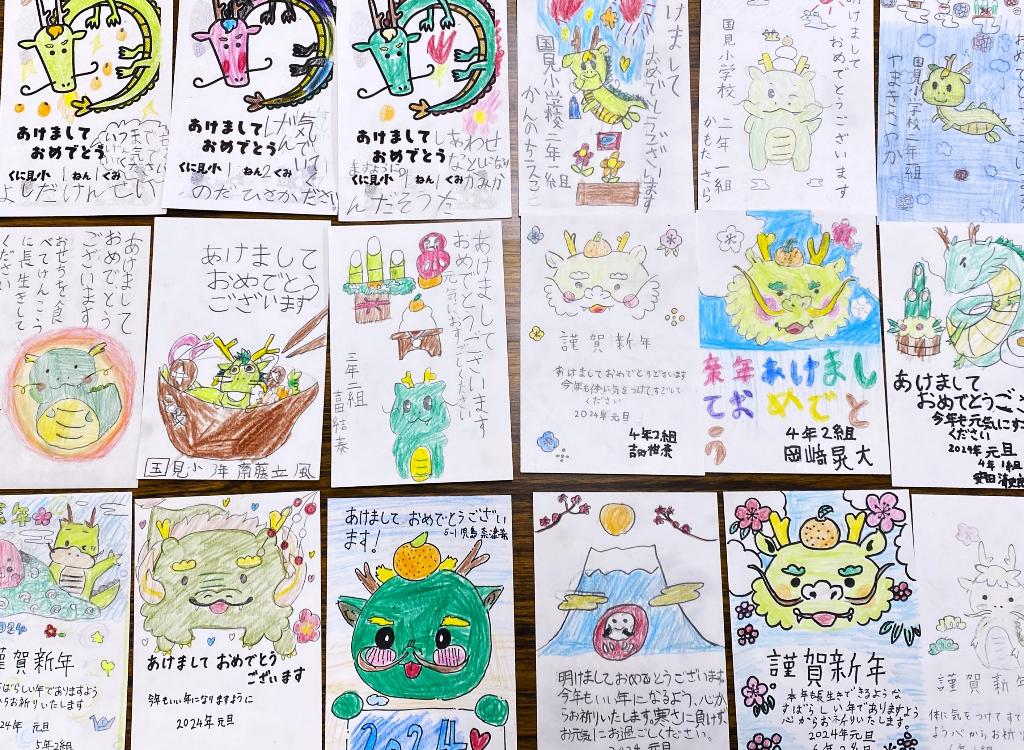 あけまして
おめでとう
くに見小 1 ねん 1 くみ
よしだけんせい
あけまして
おめでとう
くに見小 1 ねん2 くみ
のだ ひさか
あけまして
おめでとう
くに見小 1 ねん 1 くみ
あけまして
おめでとうございます
国見小学校 二年一組
かんの
明けまして
おめでとうございます
国見小学校 二年一組
かもた さら
国見小学校二年一組
やまさき
あけまして
おめでとう
ございます
おせちを食
べてけんこう
に長生きして
ください
あけまして
おめでとう
ございます
国見小 3年 斎藤立風
あけまして
おめでとうございます
元気におすごしください
三年二組
謹賀新年
あけましておめでとうございます
今年も体に気をつけてすごして
ください
2024年元旦
4年2組
吉田柑奈
来年あけまし
ておめでと
う
4年2組
岡崎晃大
あけまして
おめでとうご
今年も元気にすご
ください
2024年 元旦
4年1組
辰年
2024
謹賀新年
すばらしい年でありますよう
心からお祈りいたします
2024年 元旦
5年2組
あけまして おめでとう
ございます
今年もいい年になりますように
2024年元旦
あけまして おめでとうござい
ます!
5-1 児島
2024
明けましておめでとうございます。
今年もいい年になるよう、心か
らお祈りいたします。寒さに負けず、
お元気にお過ごしください。
2024年 元旦
謹賀新年
本年も長生きできるような
すばらしい年でありますよう
心からお祈りいたします。
2024年元旦
謹賀新
体に気をつけてす
よう心からお祈り